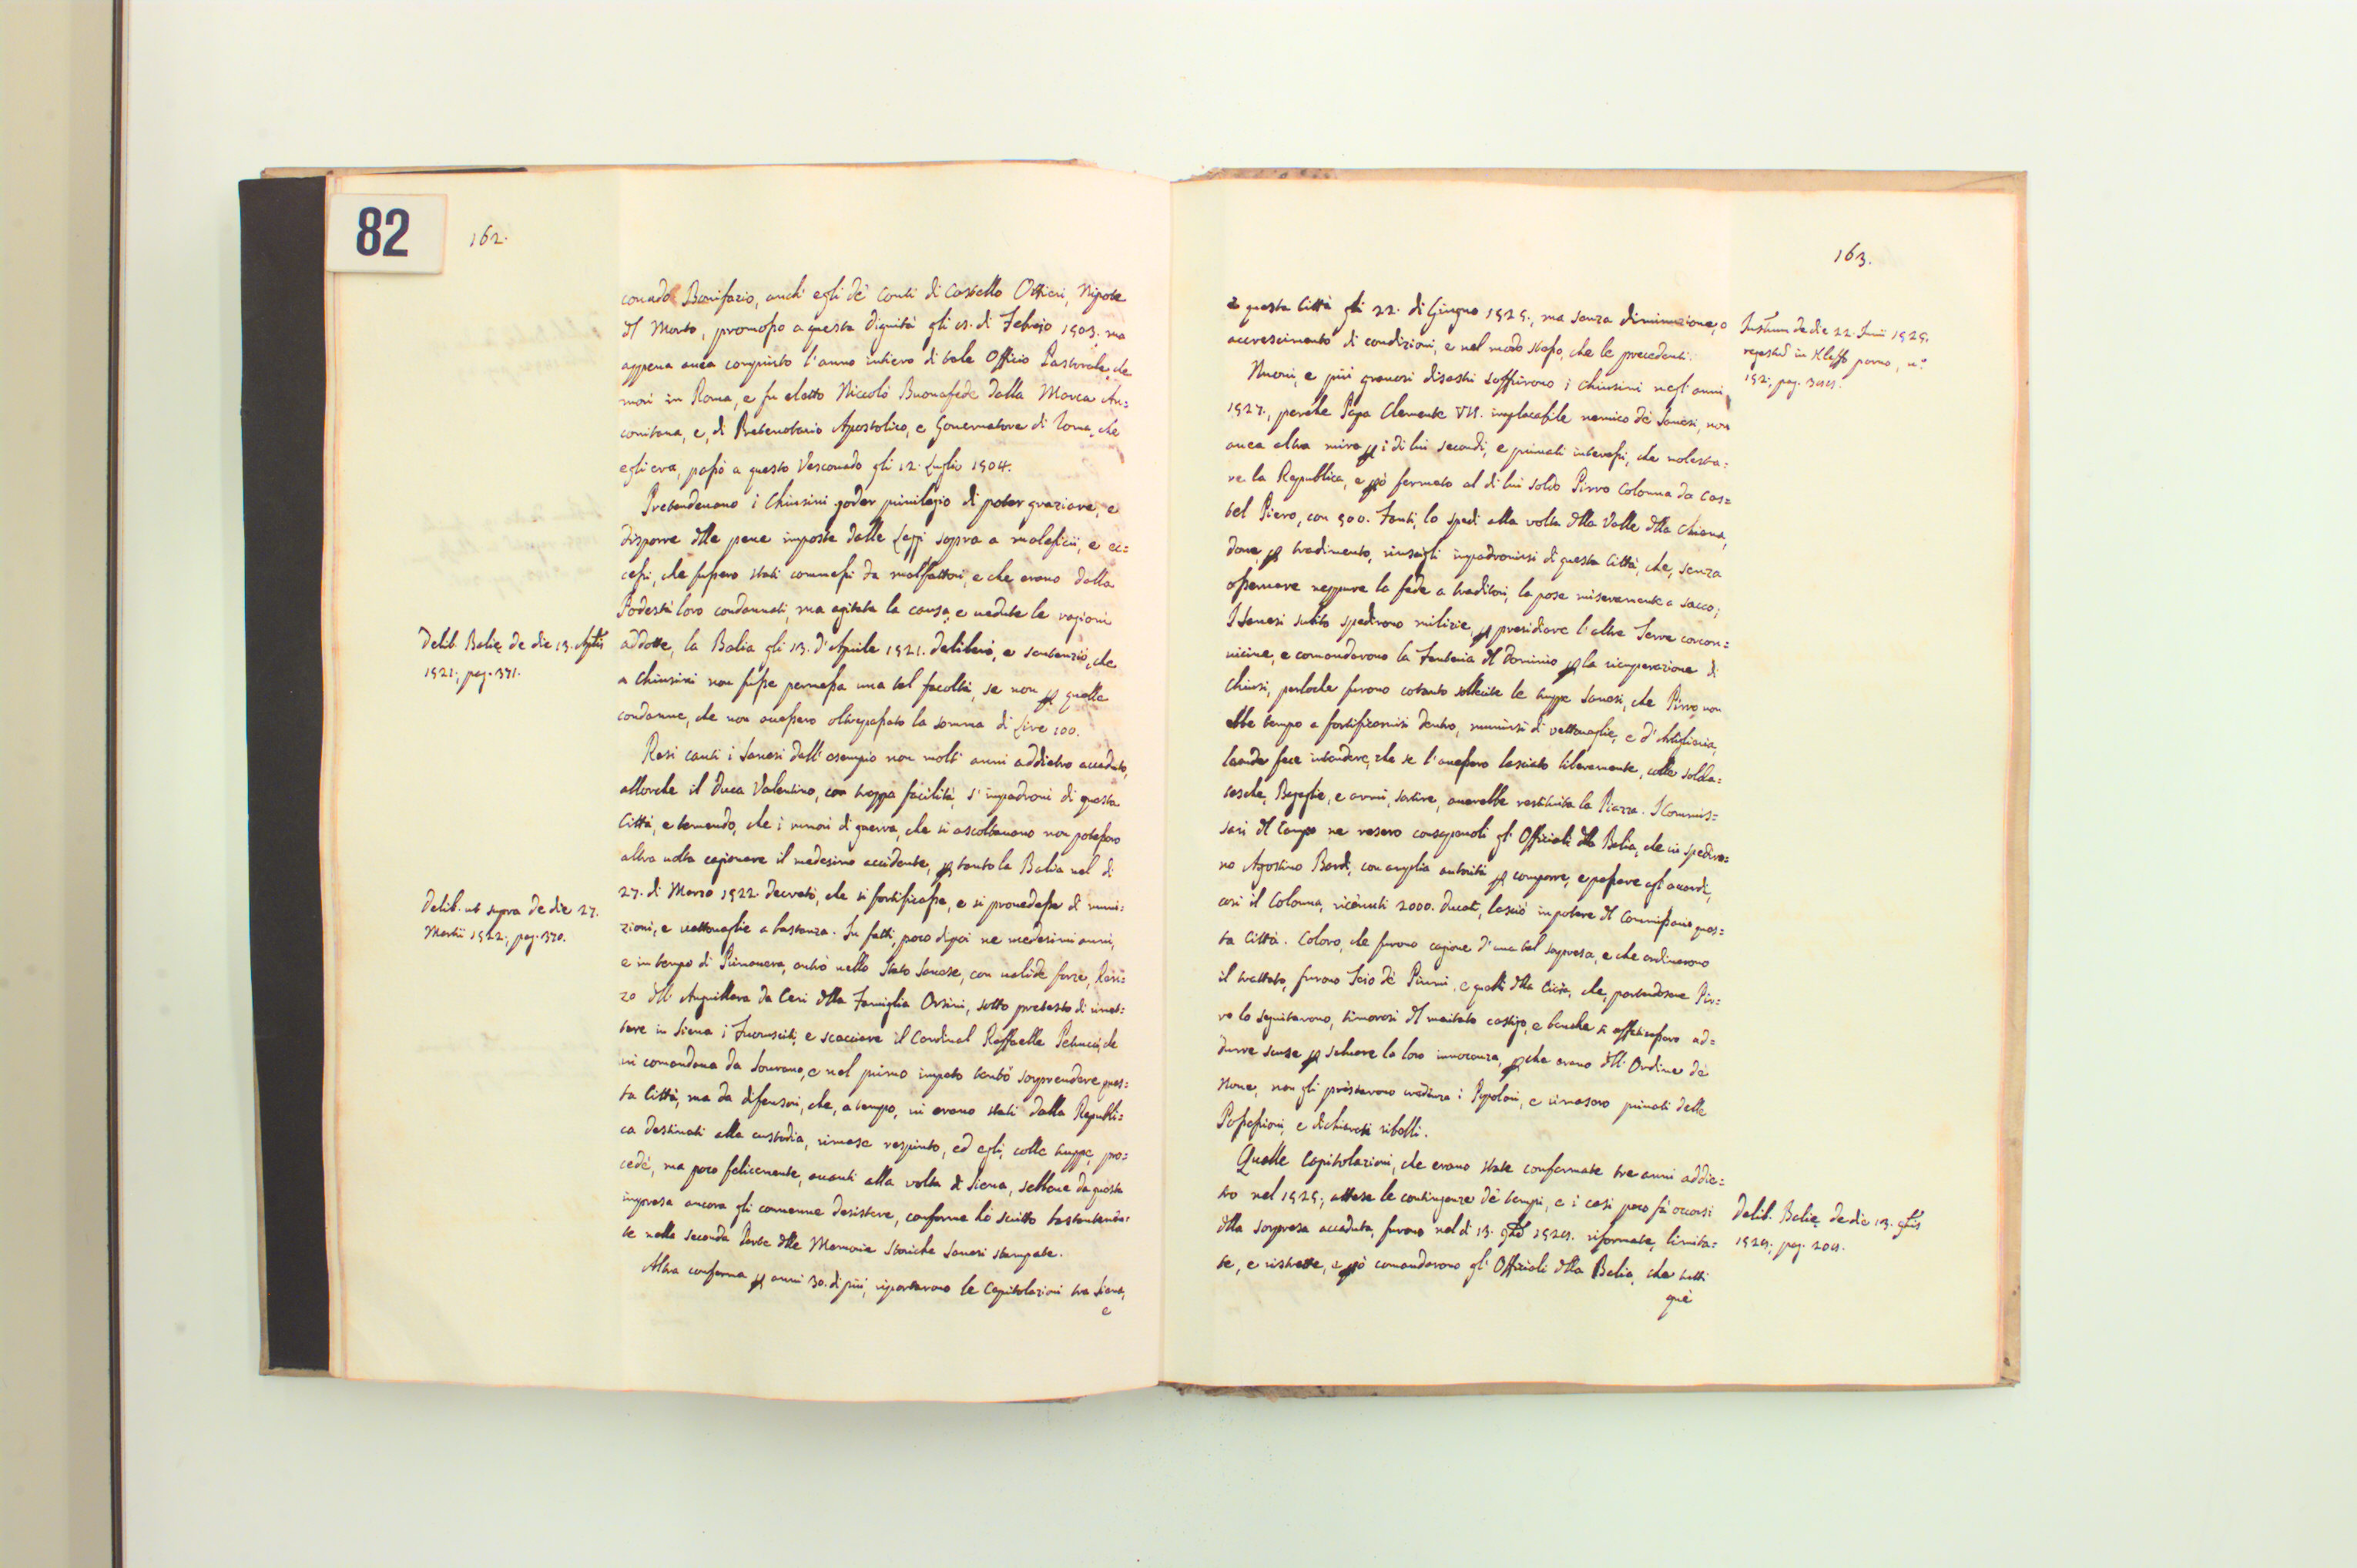 82
162.
couado Bonifazio, anch' egli dè Conti di Castello Ottieri, Nipote
del Morto, promosso a questa dignità gli 8. di Febrajo 1503. ma
appena avea compiuto l'anno intiero di tale Officio Pastorale, che
morì in Roma, e fu eletto Niccolò Buonafede dalla Marca An=
conitana, e, di Protenotario Apostolico, e Governatore di Roma, che
egli era, passò a questo Vescouado gli 12. Luglio 1504.
Pretendeuano i Chiusini goder priuilegio di poter graziare, e
disporre delle pene imposte dalle Leggi sopra a maleficii, e ec=
cessi, che fussero stati commessi da malfattori, e che erano dalla
Podestà loro condannati, ma agitata la causa, e uedute le ragioni
addotte, la Balia gli 13. d'Aprile 1521. deliberò, e sentenziò, che
a Chiusini non fusse permessa una tal facoltà, se non per quelle
condanne, che non auessero oltrepassato la somma di Lire 100.
Delib. Balię de die 13. Aplis
1521; pag. 371.
Resi cauti i Sanesi dall'esempio non molti anni addietro accaduto,
allorche il Duca Valentino, con troppa facilità, s'impadronì di questa
Città, e temendo, che i rumori di guerra, che si ascoltauano non potessero
altra uolta cagionare il medesimo accidente, per tanto la Balia nel dì
27. di Marzo 1522. decretò, che si fortificasse, e si prouedesse di muni=
zioni, e uettouaglie a bastanza. In fatti, poco dipoi ne medesimi anni,
e in tempo di Primauera, entrò nello Stato Sanese, con ualide forze, Ren=
zo dell'Anguillara da Ceri della Famiglia Orsini, sotto pretesto di rimet=
tere in Siena i Fuorusciti, e scacciare il Cardinal Raffaelle Petrucci, che
ui comandaua da Sourano, e nel primo impeto tentò sorprendere ques=
ta Città, ma da difensori, che, a tempo, ui erano stati dalla Republi=
ca destinati alla custodia, rimase respinto, ed egli, colle truppe, pro=
cedè, ma poco felicemente, auanti alla volta di Siena, sebbene da questa
impresa ancora gli conuenne desistere, conforme hò scritto bastanteme=
te nella seconda Parte delle Memorie Storiche Sanesi stampate.
Delib. ut supra de die 27.
Martii 1522; pag. 370.
Altra conferma per anni 30. di più, riportarono le Capitolazioni tra Siena,
e
163.
e questa Città gli 22. di Giugno 1525., ma senza diminuzione, o
accrescimento di condizioni, e nel modo stesso, che le precedenti.
Instrum. de die 22. Junii 1525.
Nuoui, e più grauosi disastri soffrirono i Chiusini negl'anni
1527., perche Papa Clemente VII. implacabile nemico dè Sanesi, non
auea altra mira per i di lui secondi, e priuati interessi, che molesta=
re la Republica, e però fermato al di lui soldo Pirro Colonna da Cas=
tel Piero, con 500. Fanti, lo spedì alla volta della Valle della Chiana,
doue per tradimento, riuscigli impadronirsi di questa Città, che, senza
osseruare neppure la fede a traditori, la pose miseramente a sacco;
I Sanesi subito spedirono milizie, per presidiare l'altre Terre conuon=
uicine, e comandarono la Fanteria del Dominio per la ricuperazione di
Chiusi, perloche furono cotanto sollecite le truppe Sanesi, che Pirro non
ebbe tempo a fortificaruisi dentro, munirsi di vettouaglie, e d'Artiglieria,
laonde fece intendere, che se l'auessero lasciato liberamente, colle solda=
tesche, Bagaglie, e armi, sortire, auerebbe restituita la Piazza. I Commis=
sari del Campo ne resero consapeuoli gl'Officiali della Balia, che ui spediro=
no Agostino Bardi, con amplia autorità per comporre, e passare gl'accordi,
così il Colonna, riceuuti 2000. Ducati, lasciò in potere del Commissario ques=
ta Città. Coloro, che furono cagione d'una tal sorpresa, e che ordinarono
il trattato, furono Scio dè Pinni, e quelli della Ciaia, che, partendosene Pir=
ro lo seguitarono, timorosi del meritato castigo, e benche si affaticassero ad=
durre scuse per saluare la loro innocenza, perche erano dell'Ordine dè
Noue, non gli prestarono credenza i Popolani, e rimasero priuati delle
Possessioni, e dichiarati ribelli.
Quelle Capitolazioni, che erano state confermate tre anni addie=
tro nel 1525; attese le contingenze dè tempi, e i casi poco fà occorsi
della sorpresa accaduta, furono nel dì 13. 9bre 1528. riformate, limita=
te, e ristrette, e però comandarono gl'Officiali della Balia, che tutti
què
Delib. Balię de die 13. 9bris
1528; pag. 208.